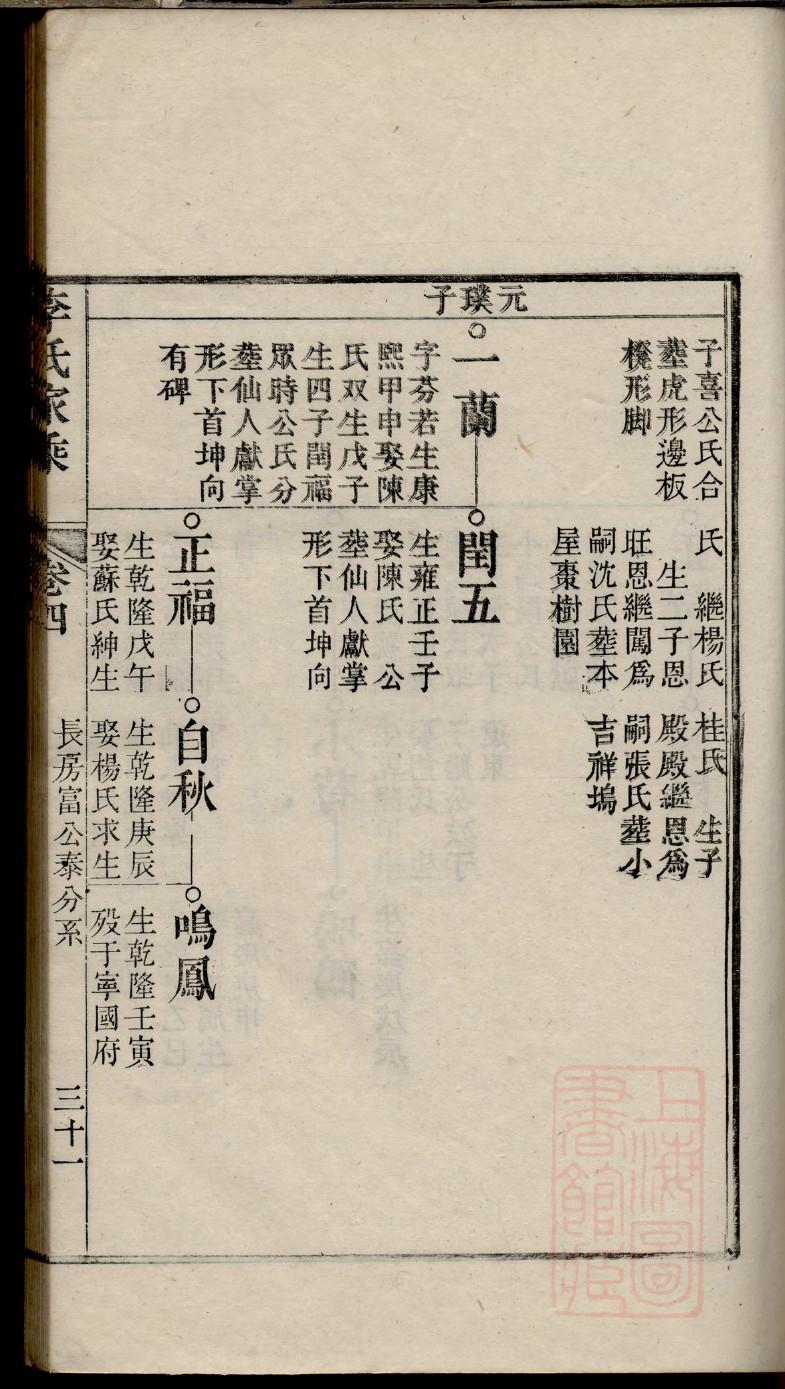 元璞子
子喜公氏合
塟虎形邊板
櫈形脚
氏　繼楊氏
生二子恩
旺恩繼闖爲
嗣沈氏塟本
屋棗樹園
桂氏　生子
殿殿繼恩爲
嗣張氏塟小
吉祥塢
一蘭
字芬若生康
熙甲申娶陳
氏双生戊子
生四子閏福
眾時公氏分
塟仙人獻掌
形下首坤向
有碑
閏五
生雍正壬子
娶陳氏　公
塟仙人獻掌
形下首坤向
正福
生乾隆戊午
娶蘇氏紳生
自秋
生乾隆庚辰
娶楊氏求生
鳴鳳
生乾隆壬寅
歿于寧國府
李氏家乘
卷四
長房富公泰分系
三十一
上海圖
書館藏